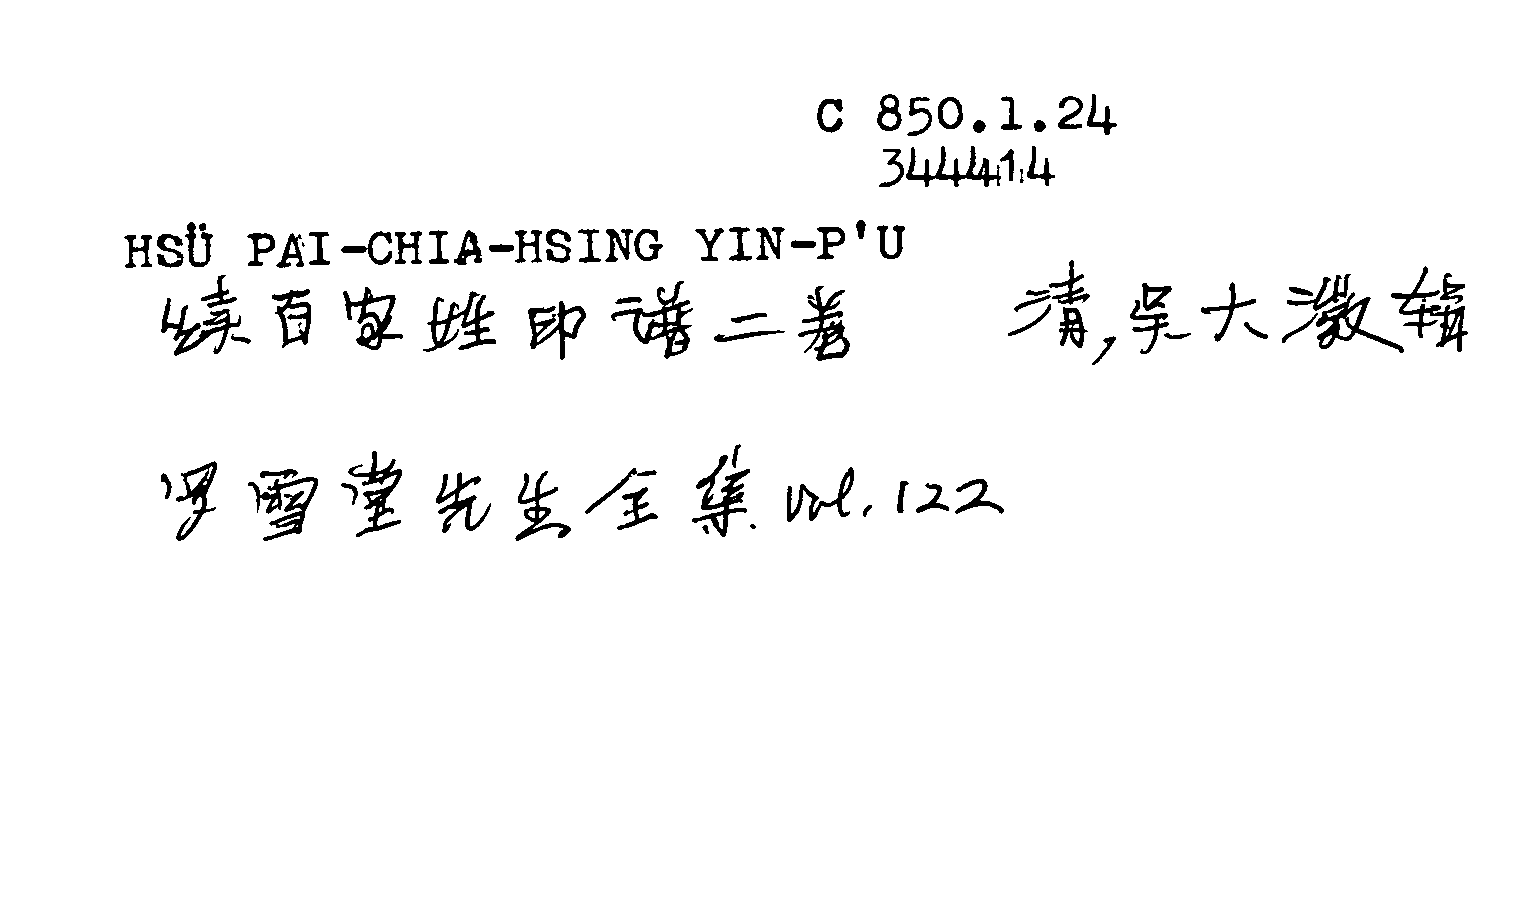 C 850.1.24
344414
HSÜ PAI-CHIA-HSING YIN-P'U
续百家姓印谱二卷 清,吴大澂辑
罗雪堂先生全集 vol. 122